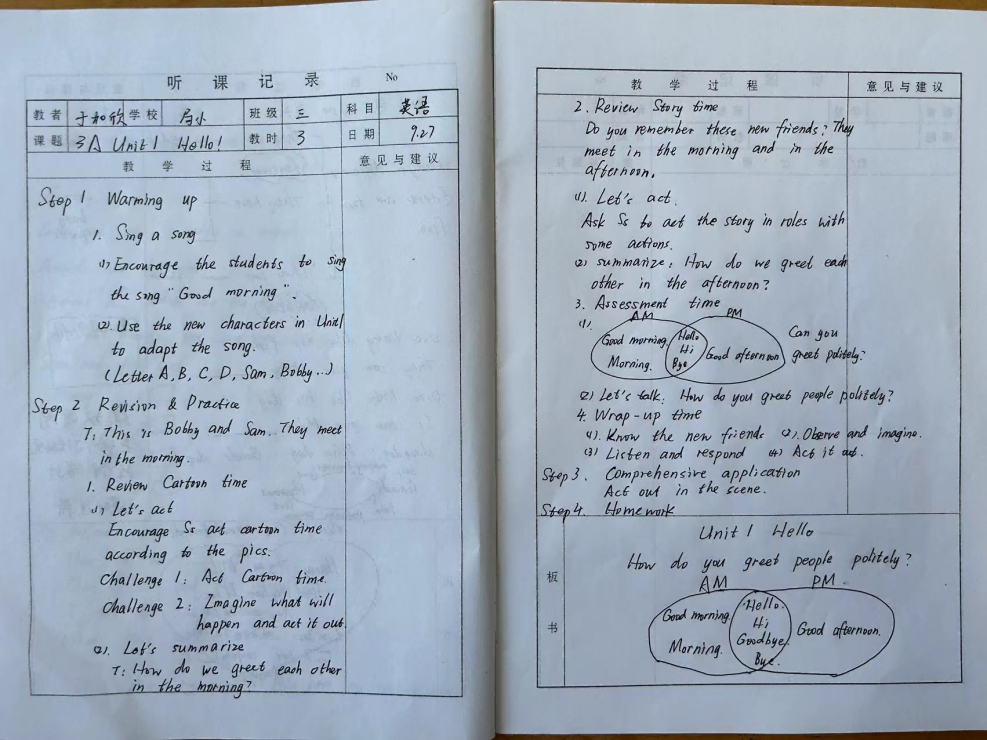 听 课 记 录 No
教者 于和欣 学校 局小 班级 三 科目 英语
课题 3A Unit 1 Hello! 教时 3 日期 9.27
教 学 过 程 意见与建议
Step 1 Warming up
1. Sing a song
(1) Encourage the students to sing
the song "Good morning".
(2). Use the new characters in Unit1
to adapt the song.
(Letter A, B, C, D, Sam, Bobby...)
Step 2 Revision & Practice
T: This is Bobby and Sam. They meet
in the morning.
1. Review Cartoon time
(1) Let's act
Encourage Ss act cartoon time
according to the pics.
Challenge 1: Act Cartoon time.
Challenge 2: Imagine what will
happen and act it out.
(2). Let's summarize
T: How do we greet each other
in the morning?
教 学 过 程 意见与建议
2. Review Story time
Do you remember these new friends? They
meet in the morning and in the
afternoon.
(1). Let's act.
Ask Ss to act the story in roles with
some actions.
(2) summarize: How do we greet each
other in the afternoon?
3. Assessment time
AM PM
(1).
Good morning. Hello Can you
Hi Good afternoon greet politely?
Morning. Bye
(2) Let's talk: How do you greet people politely?
4. Wrap-up time
(1). Know the new friends (2). Observe and imagine.
(3) Listen and respond (4) Act it out.
Step 3. Comprehensive application
Act out in the scene.
Step 4. Homework
板书
Unit 1 Hello
How do you greet people politely?
AM PM
Good morning. Hello.
Hi Good afternoon.
Morning. Goodbye.
Bye.